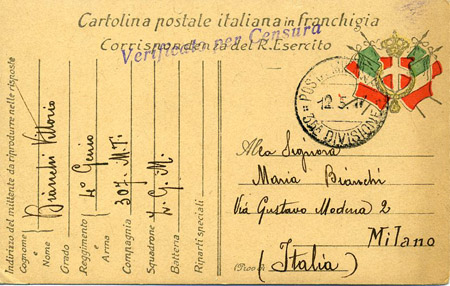 Cartolina postale italiana in franchigia
Corrispondenza del R. Esercito
Verificato per Censura
POSTA MILITARE
12.5.17
35ª DIVISIONE
Indirizzo del mittente da riprodurre nelle risposte
Cognome e Nome Bianchi Vittorio
Grado
Reggimento e Arma 4º Genio
Compagnia 307. M.T.
Squadrone Z. G. M.
Batteria
Riparti speciali
Alla Signora
Maria Bianchi
Via Gustavo Modena 2
Milano
(Italia)